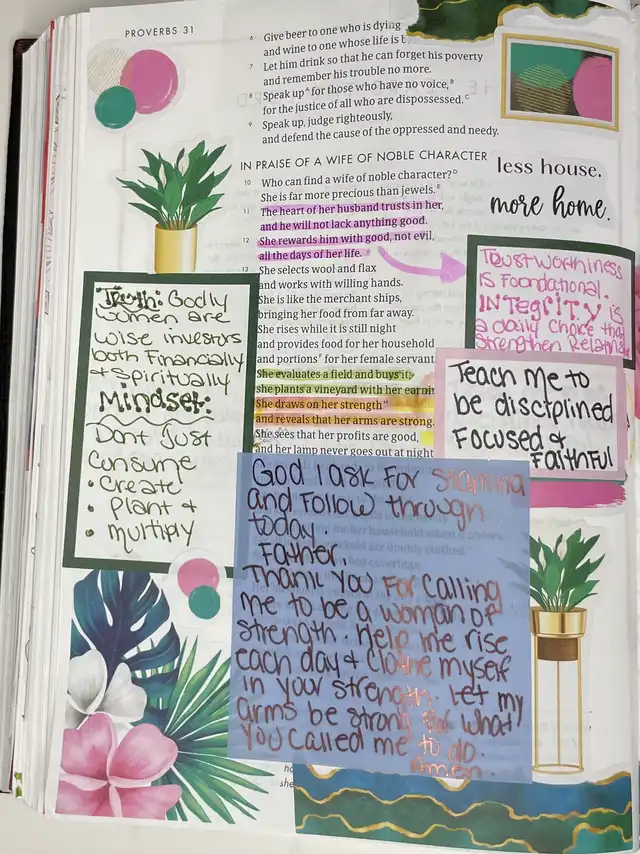 PROVERBS 31
6 Give beer to one who is dying
and wine to one whose life is b
7 Let him drink so that he can forget his poverty
and remember his trouble no more.
8 Speak upA for those who have no voice,B
for the justice of all who are dispossessed.C
9 Speak up, judge righteously,
and defend the cause of the oppressed and needy.
IN PRAISE OF A WIFE OF NOBLE CHARACTER
10 Who can find a wife of noble character?D
She is far more precious than jewels.E
11 The heart of her husband trusts in her,
and he will not lack anything good.
12 She rewards him with good, not evil,
all the days of her life.
13 She selects wool and flax
and works with willing hands.
She is like the merchant ships,
bringing her food from far away.
She rises while it is still night
and provides food for her household
and portionsF for her female servant
She evaluates a field and buys it;
she plants a vineyard with her earnin
She draws on her strength
and reveals that her arms are strong.
She sees that her profits are good,
and her lamp never goes out at night
less house.
more home.
Trustworthiness
is Foundational.
INTegriTY is
a daily choice that
strengthen Relations
Teach me to
be disciplined
Focused &
Faithful
Truth: Godly
women are
wise investors
both Financially
& Spiritually
Mindset:
Dont Just
Consume
• Create
• Plant &
• multiply
God I ask For Stamina
and Follow through
today.
Father,
Thank you For calling
me to be a woman of
strength. Help me rise
each day & Clothe myself
in your strength. Let my
arms be strong for what
You called me to do.
Amen.
she